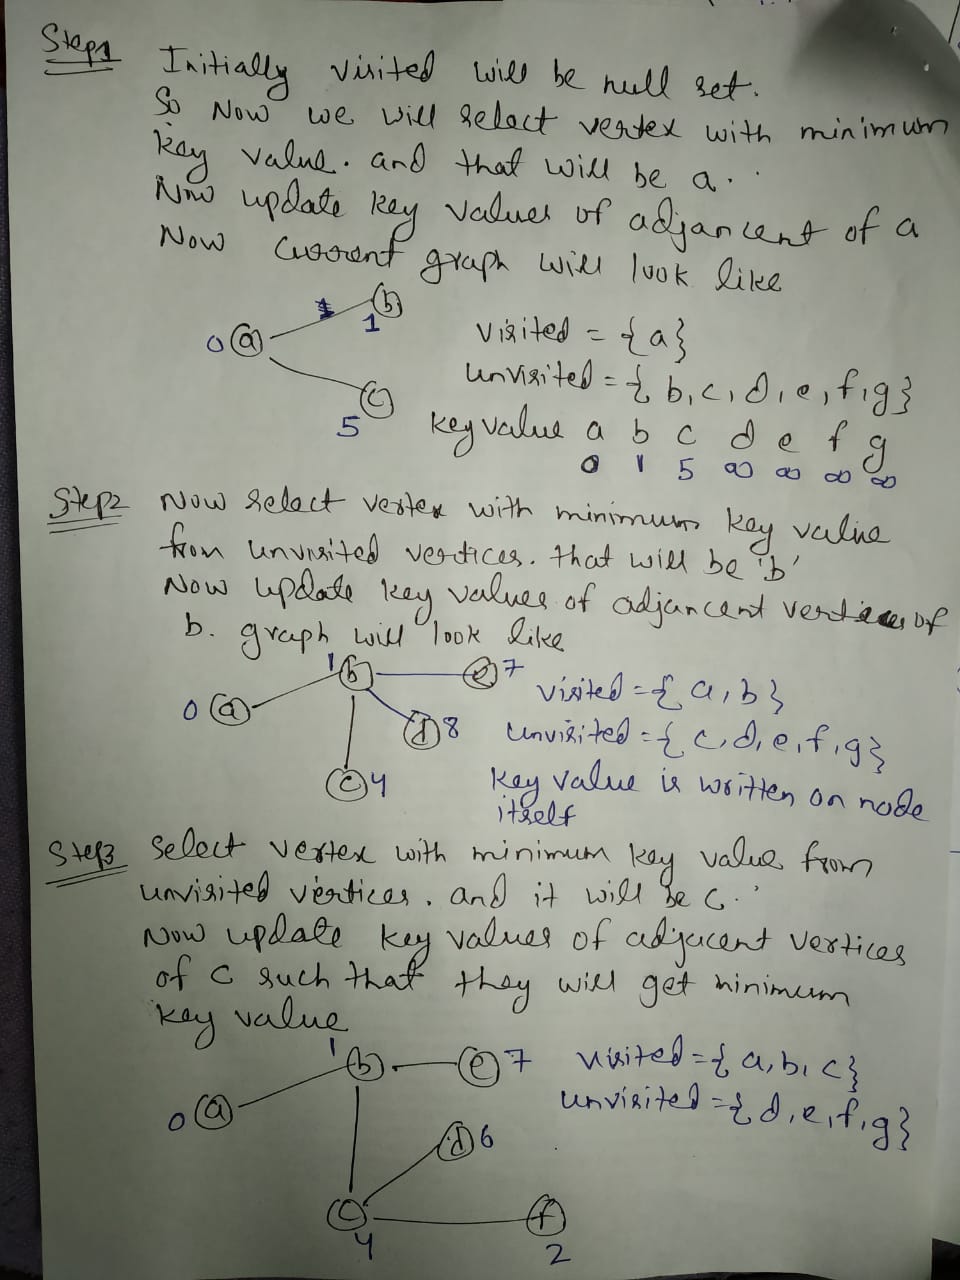 Step1 Initially visited will be null set.
So Now we will select vertex with minimum
key value. and that will be a.
Now update key values of adjancent of a
Now current graph will look like
b
1
0 a
c
5
visited = {a}
unvisited = { b, c, d, e, f, g}
key value a b c d e f g
0 1 5 ∞ ∞ ∞ ∞
Step2 Now select vertex with minimum key value
from unvisited vertices. that will be 'b'
Now update key values of adjancent vertices of
b. graph will look like
1 b e 7
0 a
d 8
c 4
visited = { a, b}
unvisited = { c, d, e, f, g}
key value is written on node
itself
Step3 select vertex with minimum key value from
unvisited vertices. and it will be c.
Now update key values of adjacent vertices
of c such that they will get minimum
key value
1 b e 7
0 a
d 6
c f
4 2
visited = { a, b, c}
unvisited = { d, e, f, g}